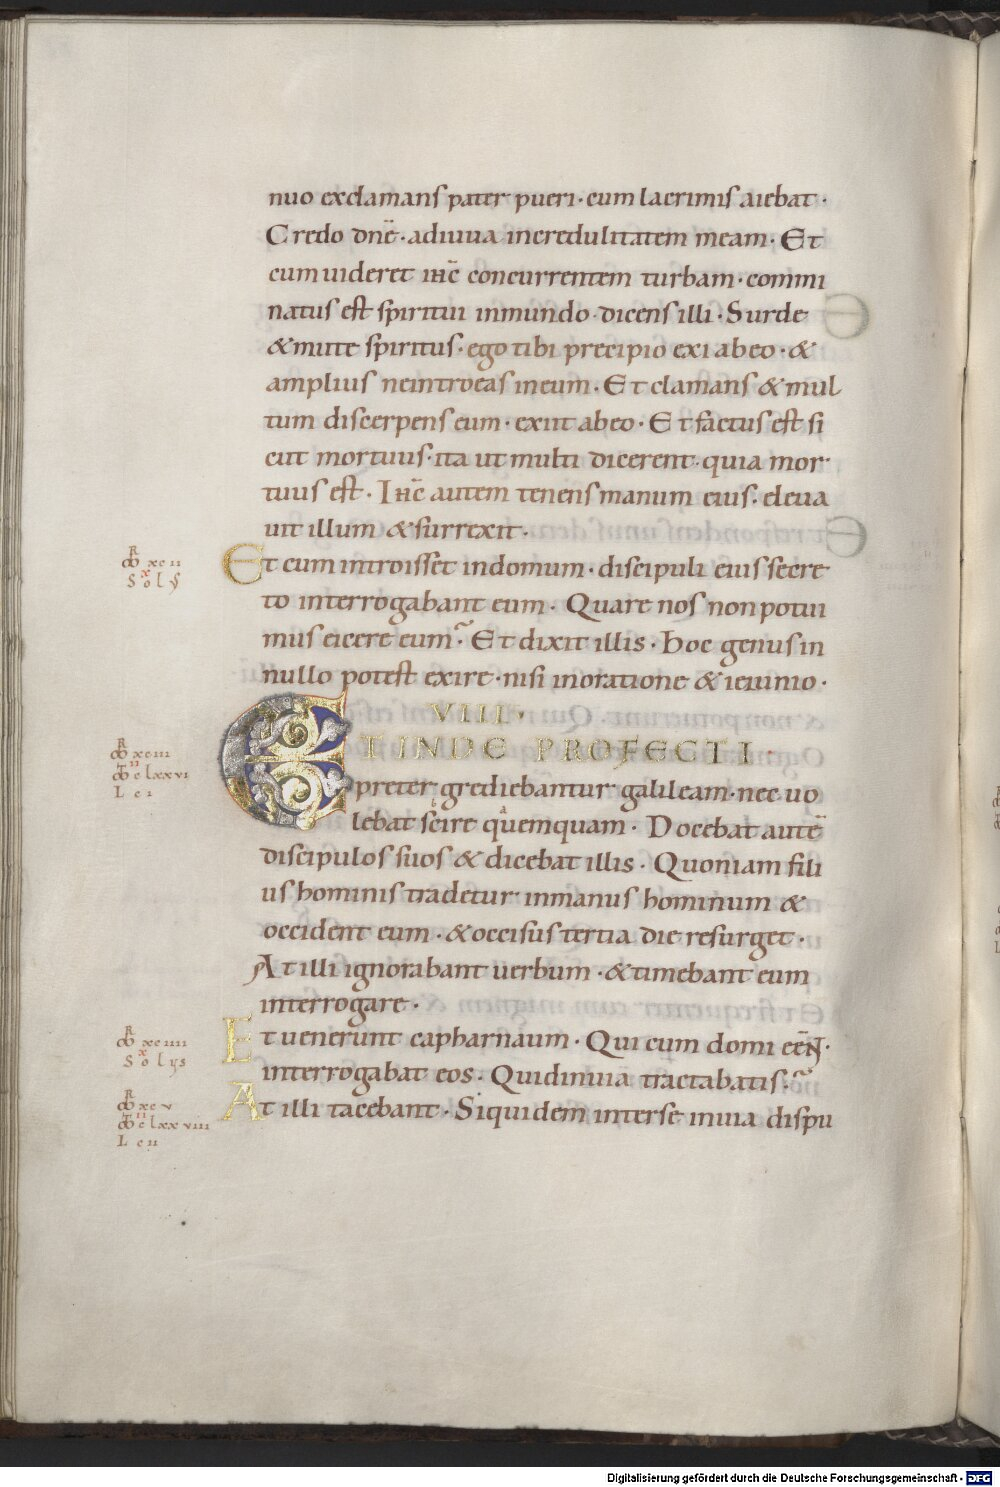 nuo exclamans pater pueri · cum lacrimis aiebat ·
Credo dnē · adiuua incredulitatem meam · Et
cum uideret ihc̄ concurrentem turbam · commi
natus est spiritui inmundo · dicens illi · Surde
& mute spiritus · ego tibi precipio exi ab eo · &
amplius ne introeas in eum · Et clamans & mul
tum discerpens eum · exiit ab eo · Et factus est si
cut mortuus · ita ut multi dicerent · quia mor
tuus est · Ihc̄ autem tenens manum eius · eleua
uit illum & surrexit ·
R
xcii
Solus
Et cum introisset in domum · discipuli eius secre
to interrogabant eum · Quare nos non potui
mus eicere eum · Et dixit illis · hoc genus in
nullo potest exire · nisi in oratione & ieiunio ·
VIIII ·
R
xciii
clxxvi
L ci
ET INDE PROFECTI ·
preter grediebantur galileam · nec uo
lebat scire quemquam · Docebat autē
discipulos suos & dicebat illis · Quoniam fili
us hominis tradetur in manus hominum &
occident eum · & occisus tertia die resurget ·
At illi ignorabant uerbum · & timebant eum
interrogare ·
R
xciiii
Solus
Et uenerunt capharnaum · Qui cum domi eēn̄ ·
interrogabat eos · Quid in uia tractabatis ·
R
xcv
clxxviii
L cii
At illi tacebant · Siquidem inter se in uia dispu
Digitalisierung gefördert durch die Deutsche Forschungsgemeinschaft - DFG